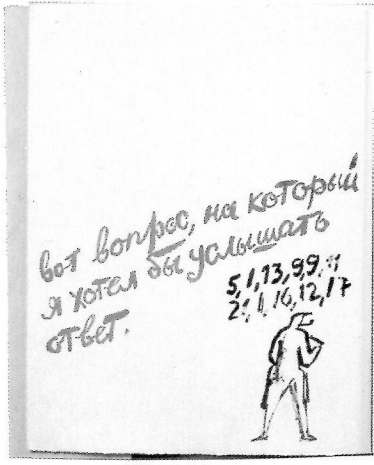 вот вопрос, на который
я хотел бы услышать
ответ.
5, 1, 13, 9, 9,
16, 12, 17